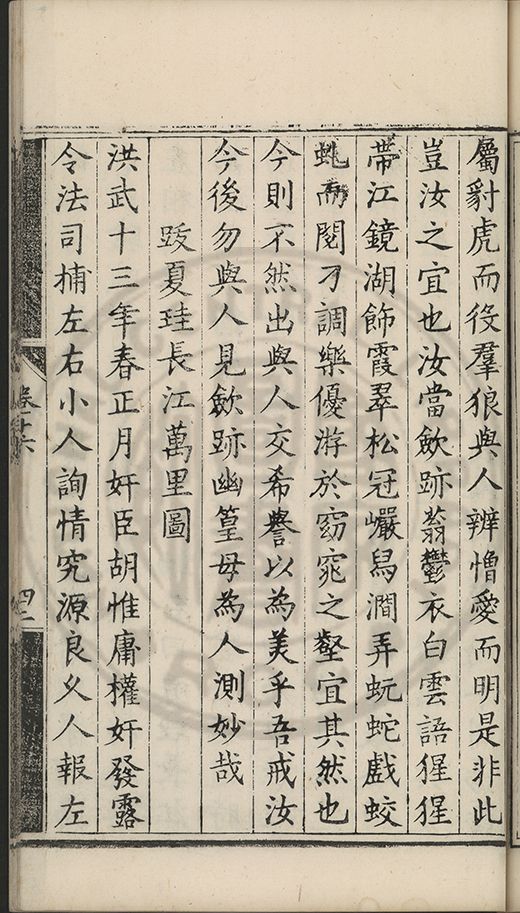 屬豺虎而役羣狼與人辨憎愛而明是非此
豈汝之宜也汝當歛跡蓊鬱衣白雲語猩猩
帶江鏡湖飾霞翠松冠巘舄澗弄蚖蛇戲蛟
虬而閱刁調樂優游於窈窕之壑宜其然也
今則不然出與人交希譽以為美乎吾戒汝
今後勿與人見歛跡幽篁母為人測妙哉
跋夏珪長江萬里圖
洪武十三年春正月奸臣胡惟庸權奸發露
令法司捕左右小人詢情究源良久人報左
卷十六
四二